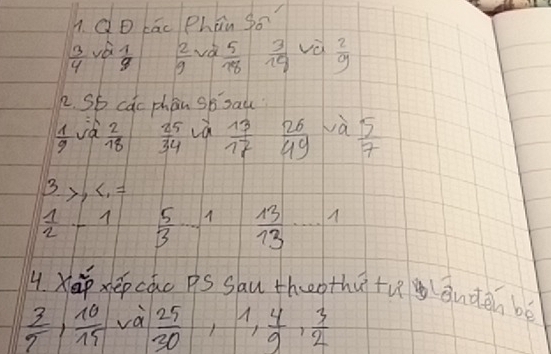 1. QĐ các Phân Số
3/4 và 1/8 2/9 và 5/18 3/18 và 2/9
2. SS các phân số sau:
1/9 và 2/18 25/34 và 13/17 26/49 và 5/7
3 >, <, =
1/2 ... 1 5/3 ... 1 13/13 ... 1
4. Xắp xếp các PS sau theo thứ tự lớn đến bé
10/15 và 25/30, 1, 4/9, 3/2